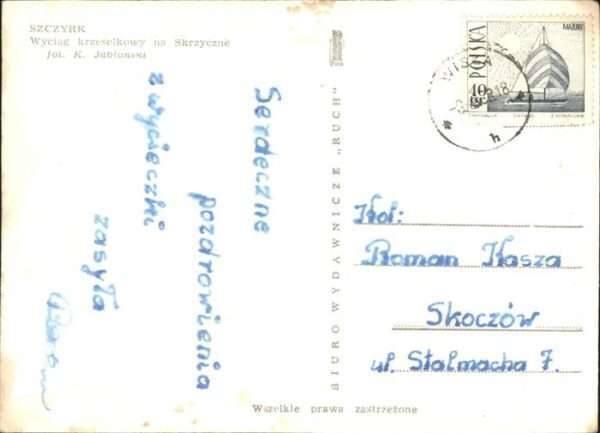 SZCZYRK
Wyciąg krzesełkowy na Skrzyczne
fot. K. Jabłoński
Serdeczne
pozdrowienia
z wycieczki
zasyła
BIURO WYDAWNICZE „RUCH"
MAZURY
POLSKA
WISŁA
h
Kol:
Roman Kasza
Skoczów
ul. Stalmacha 7.
Wszelkie prawa zastrzeżone